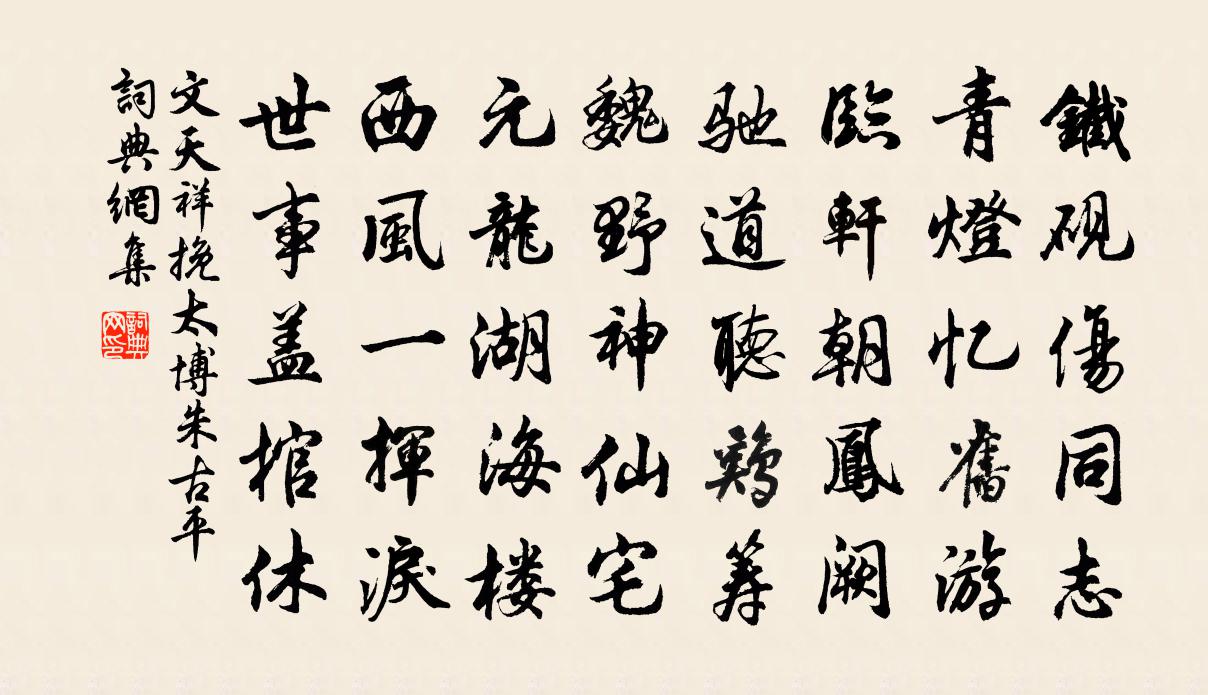 鐵硯傷同志
青燈忆舊游
臨軒朝鳳闕
馳道聽鶏筹
魏野神仙宅
元龍湖海楼
西風一揮淚
世事盖棺休
文天祥挽太博朱古平
詞典網集
詞典网印